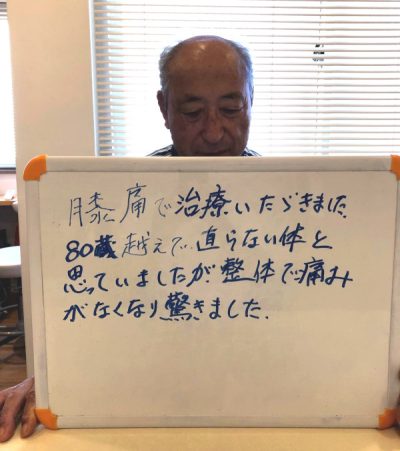 膝痛で治療いたゞきました。
80歳越えで直らない体と
思っていましたが整体で痛み
がなくなり驚きました.